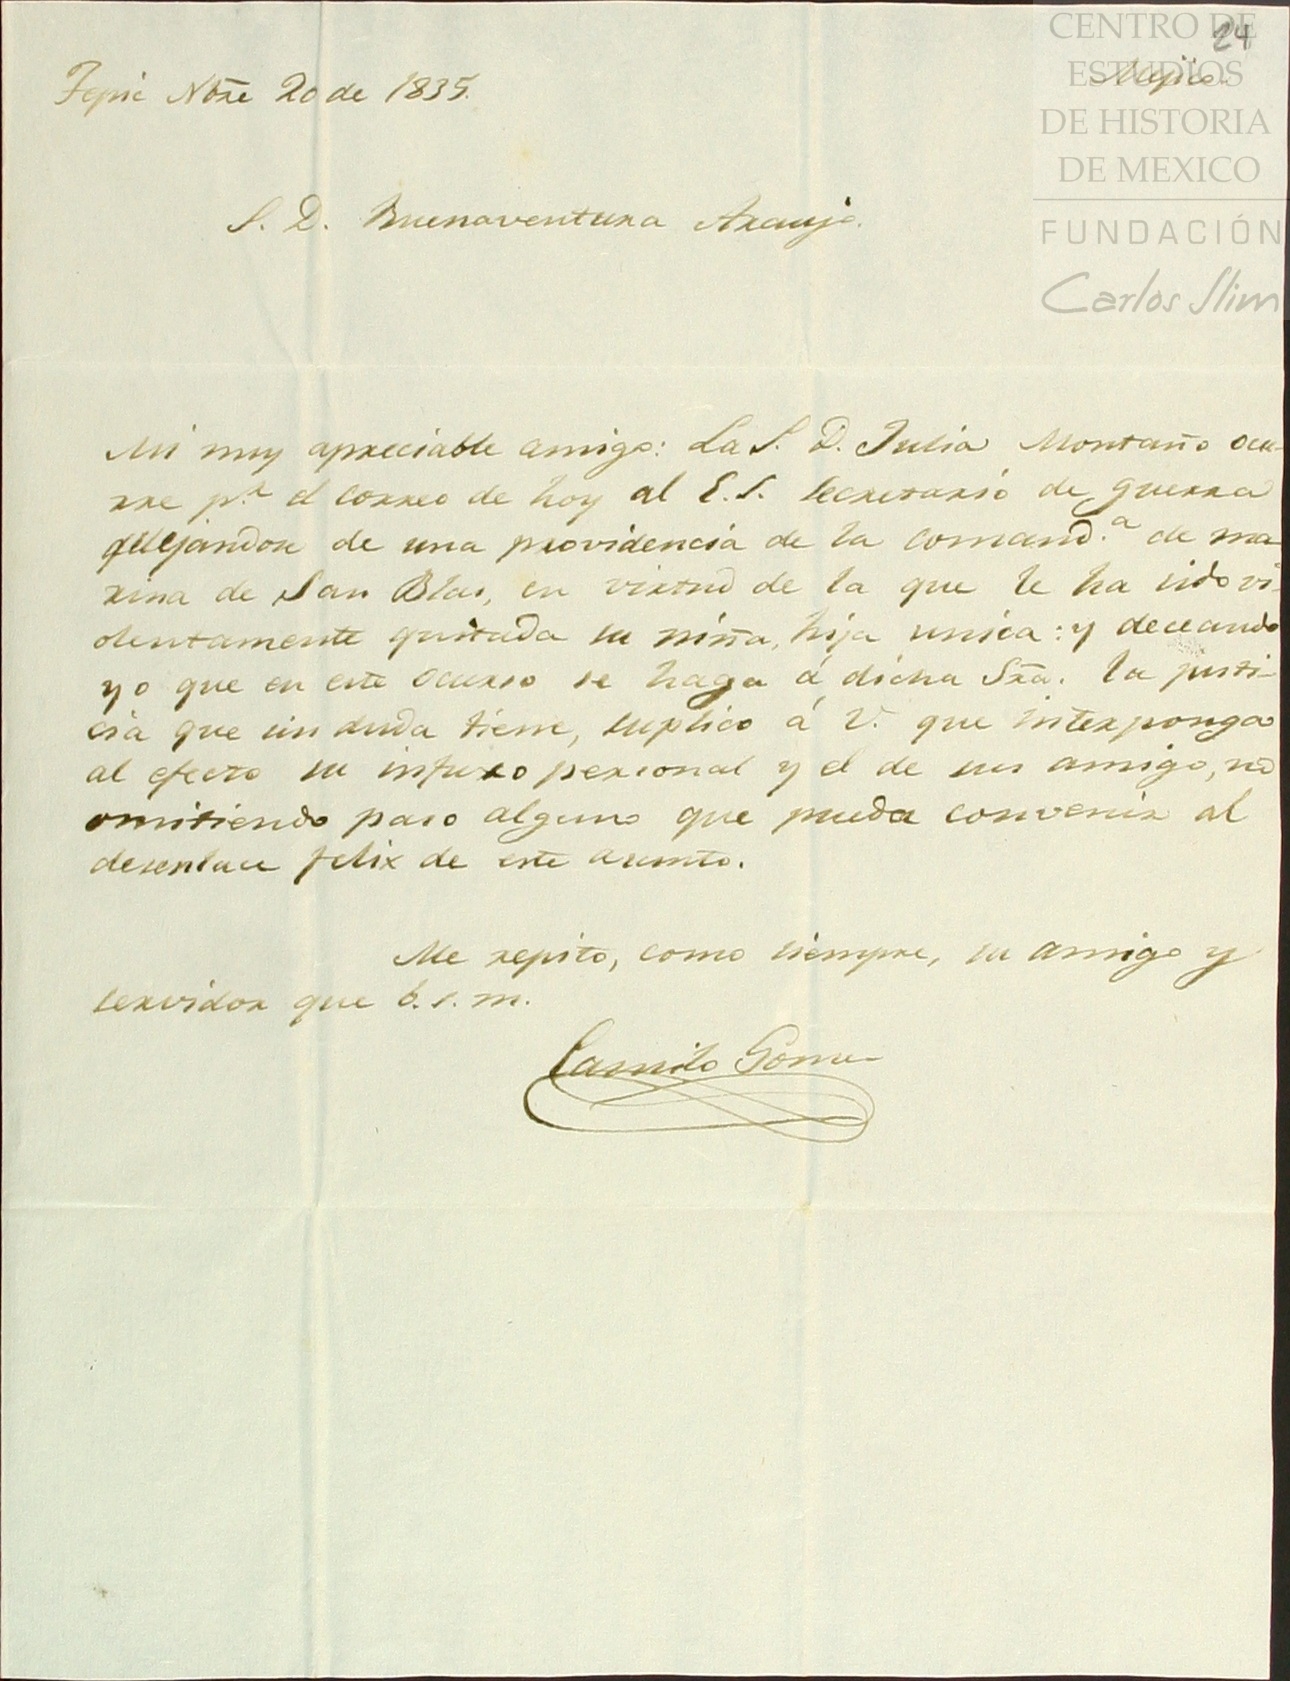 24
Mejico.
Tepic Nbre 20 de 1835.
S. D. Buenaventura Araujo.
Mi muy apreciable amigo: La S. D. Julia Montaño ocu-
rre pr. el correo de hoy al E. S. Secretario de guerra
quejandose de una providencia de la comand.a de ma
rina de San Blas, en virtud de la que le ha sido vi-
olentamente quitada su niña, hija unica: y deceando
yo que en este ocurso se haga á dicha Sra. la justi-
cia que sin duda tiene, suplico á V. que interponga
al efecto su influxo personal y el de sus amigo, no
omitiendo paso alguno que pueda convenir al
desenlace felix de este asunto.
Me repito, como siempre, su amigo y
servidor que b. s. m.
Camilo Gomez
CENTRO DE
ESTUDIOS
DE HISTORIA
DE MEXICO
FUNDACIÓN
Carlos Slim